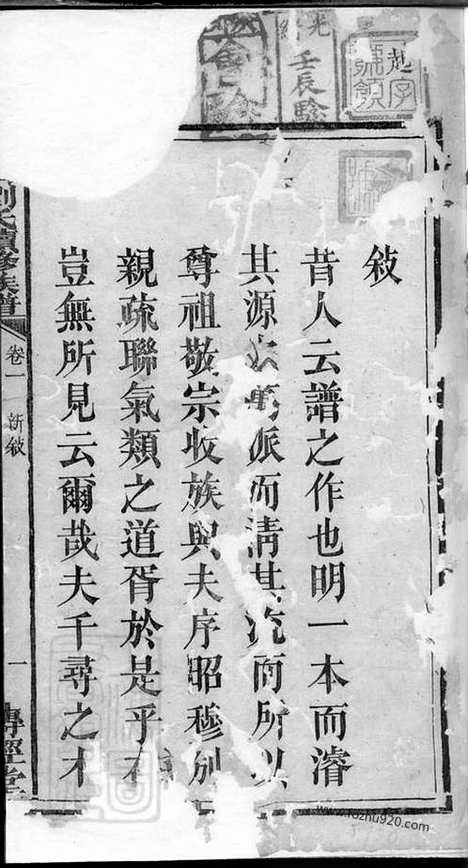 敍
昔人云譜之作也明一本而濬
其源 萬派而清其流而所以
尊祖敬宗收族與夫序昭穆別
親疏聯氣類之道胥於是乎在
豈無所見云爾哉夫千尋之木
氏續修族譜
卷一
新敍
一
傳經堂
光緒
壬辰
字
號領
www.fozhu920.com